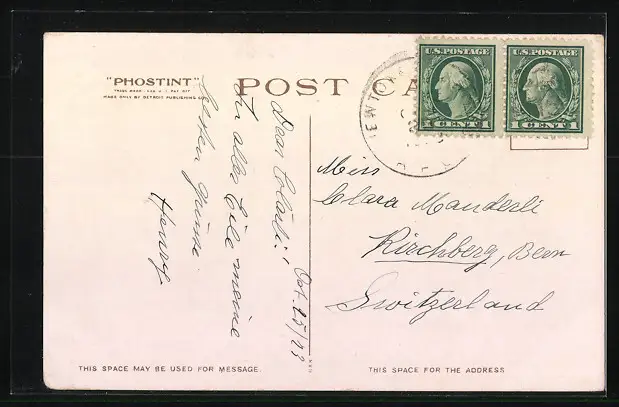 "PHOSTINT"
MADE ONLY BY DETROIT PUBLISHING
POST CA
U.S. POSTAGE
1 CENT 1
U.S. POSTAGE
1 CENT 1
Dear Clärli!
In aller Eile meine
besten Grüsse
Henry
Oct. 25/23
Miss
Clara Manderli
Kirchberg, Bern
Switzerland
THIS SPACE MAY BE USED FOR MESSAGE.
THIS SPACE FOR THE ADDRESS